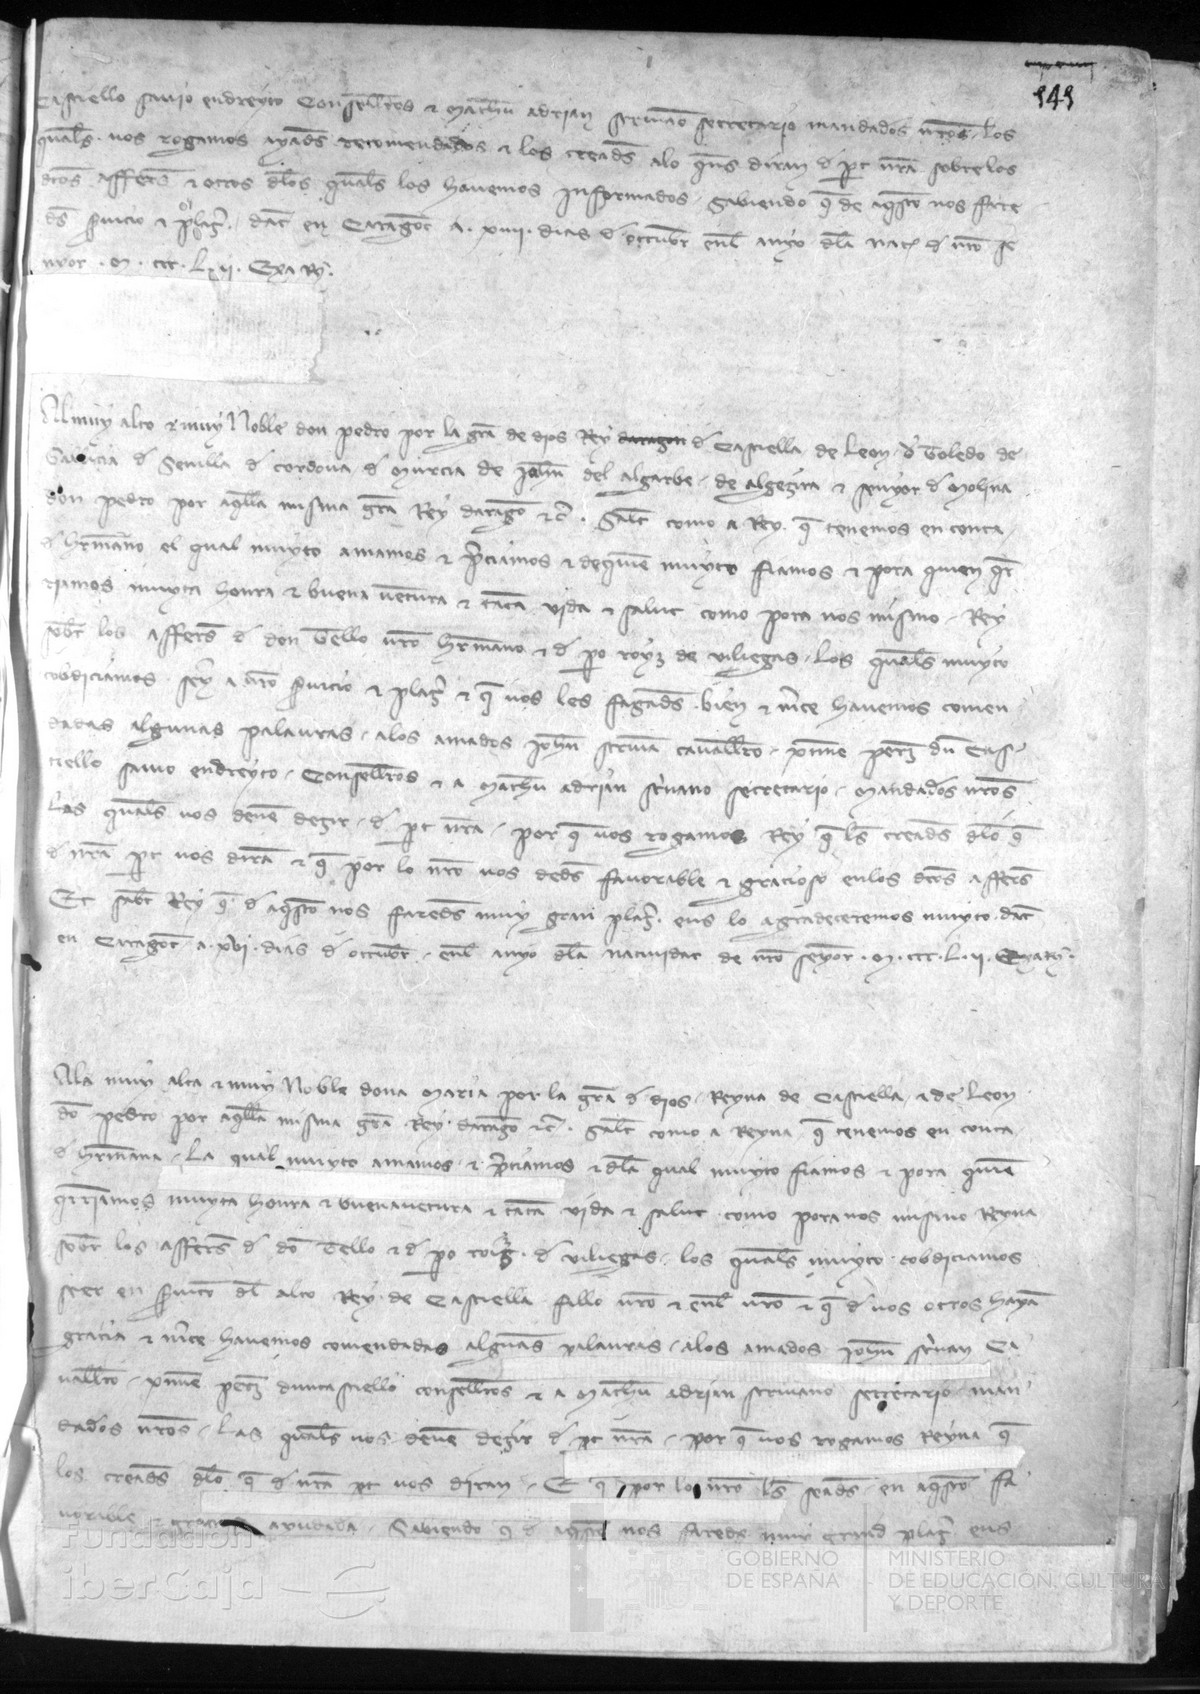 149
Castiello savio endreyto Conselleros & Matheu adrian scrivano secretario mandados nr̄os los
quals vos rogamos ayads recomendados & los creads alo quens diran d p̄t nr̄a sobre los
dtos affers & otros dlos quals los havemos Informados Sabiendo q̄ de aq̄sto nos fare
ds s̄vicio & plaz̄. dat̄ en Caragoc̄ a. xiiii. dias d octubr̄ enl anyo dla nat̄ d nr̄o se
nyor .M. ccc. L. ii. Exa Ry̅.
Al muy alto & muy Noble don pedro por la gr̄a de dios Rey daragon d Castiella de Leon d Toledo de
Gallicia d Sevilla d Cordova d Murcia de Jahen del algarbe de algezira & senyor d Molina
don pedro por aq̄lla misma gr̄a Rey darago &c̄. Salut como a Rey q̄ tenemos en conta
d hermano el qual muyto amamos & p̄ciamos & de quien muyto fiamos & pora quien q̄r
riamos muyta honra & buena ventura & tanta vida & salut como pora nos mismo Rey
sobr̄ los affers d don Tello vr̄o hermano & d p̄o royz de villegas Los quals muyto
cobdiciamos sey a vr̄o s̄vicio & plaz̄ & q̄ vos les fagads bien & m̄ce havemos comen
dadas algunas palauras alos amados Johan scrivan cavallero xemen perez dun Cas
tiello savio endreyto Conselleros & a Matheu adrian scrivano secretario Mandados nr̄os
Las quals vos deven dezir d p̄t nr̄a por q̄ vos rogamos Rey q̄ ls creads dlo q̄
d nr̄a p̄t vos diran & q̄ por lo nr̄o vos deds favorable & gracioso enlos dtos affers
Et sabet Rey q̄ d aq̄sto nos fareds muy gran plaz̄ ens lo agradeceremos muyto dat̄
en Caragoc̄ a xvi dias d octubr̄ enl anyo dla natividat de nr̄o senyor .M. ccc. L. ii. Exa Ry̅.
Ala muy alta & muy Noble dona Maria por la gr̄a d dios Reyna de Castiella & de Leon
don pedro por aq̄lla misma gr̄a Rey darago &c̄. Salut como a Reyna q̄ tenemos en conta
d hermana La qual muyto amamos & p̄ciamos & dla qual muyto fiamos & pora quien
q̄rriamos muyta honra & buenaventura & tanta vida & salut como pora nos mismo Reyna
sobr̄ los affers d don Tello & d p̄o roiz d villegas los quals muyto cobdiciamos
seer en s̄vicio dl alto Rey de Castiella fillo vr̄o & enl vr̄o & q̄ d vos otros hayan
gracia & m̄ce havemos comendadas algunas palauras alos amados Johan scrivan Ca
vallero xemen perez duncastiello conselleros & a Matheu adrian scrivano secretario man
dados nr̄os Las quals vos deven dezir d p̄t nr̄a por q̄ vos rogamos Reyna q̄
los creads dlo q̄ d nr̄a p̄t vos diran E q̄ por lo nr̄o ls seads en aq̄sto fa
vorable & graciosa ayudada Sabiendo q̄ d aq̄sto nos fareds muy grand plaz̄ ens
Fundación
iberCaja
GOBIERNO
DE ESPAÑA
MINISTERIO
DE EDUCACIÓN, CULTURA
Y DEPORTE